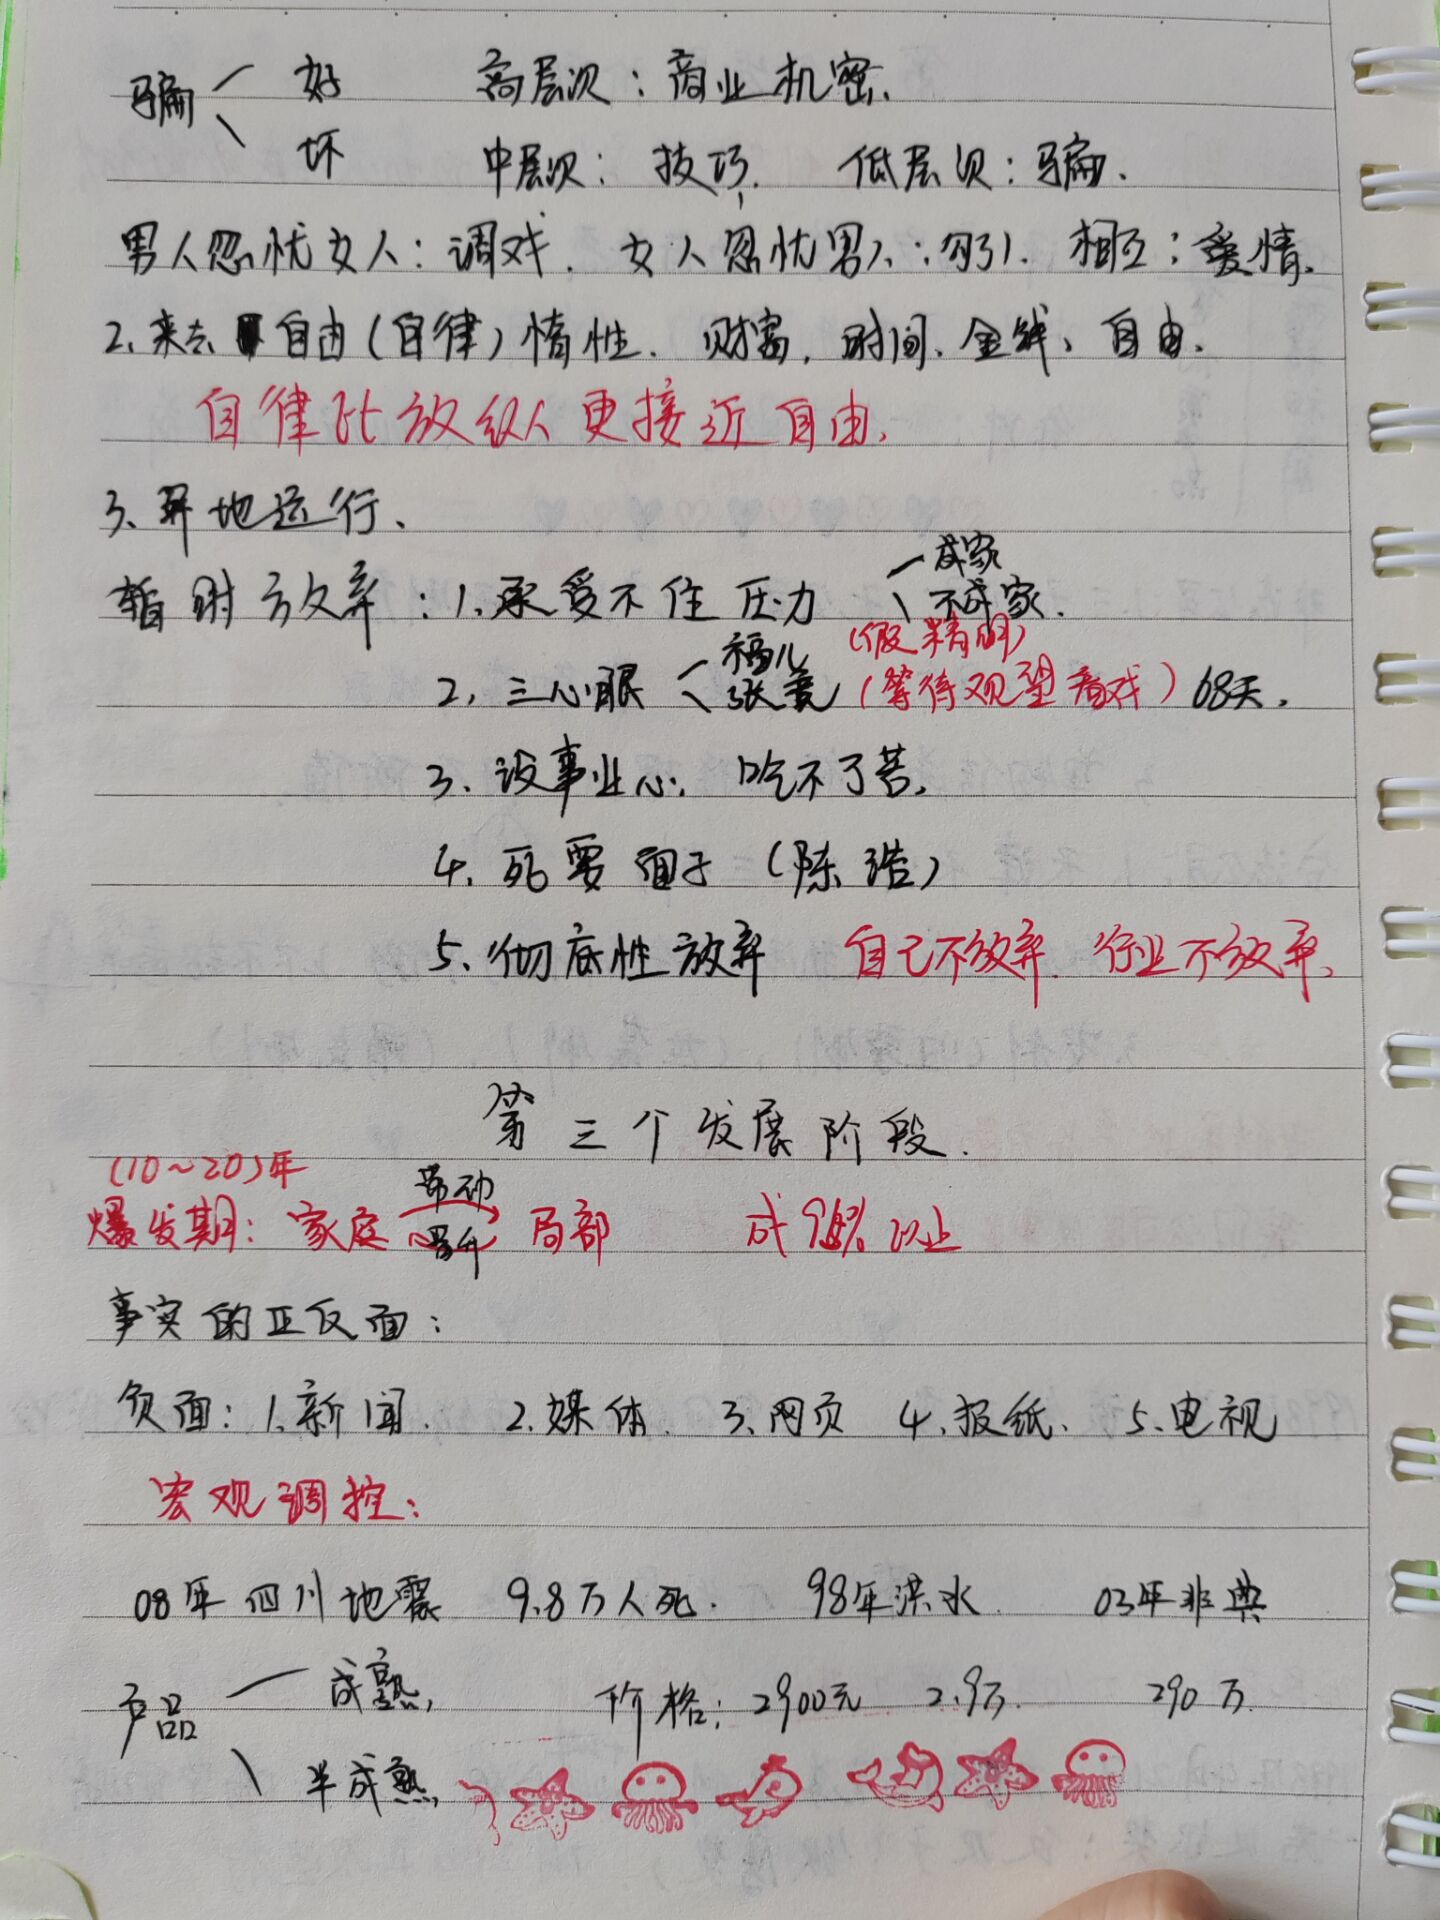 骗 好 高层次：商业机密.
坏 中层次：技巧. 低层次：骗.
男人忽忧女人：调戏. 女人忽忧男人：勾引. 相互：爱情.
2、来去 自由（自律）惰性. 财富, 时间、金钱、自由.
自律比放纵更接近自由.
3、异地运行、
成家
暂时放弃：1、承受不住压力 不成家.
福儿 (假精明)
2、三心眼 张 (等待观望看戏) 68天.
3、没事业心, 吃不了苦.
4、死要面子（陈浩）
5、彻底性放弃 自己不放弃. 行业不放弃、
第三个发展阶段.
(10~20)年
带动
爆发期：家庭 局部 成 以上
事实的正反面：
负面：1.新闻. 2.媒体. 3.网页 4.报纸、 5、电视
宏观调控：
08年四川地震 9.8万人死. 98年洪水. 03年非典
产品 成熟, 价格：2900元 2.9万. 290万.
半成熟,